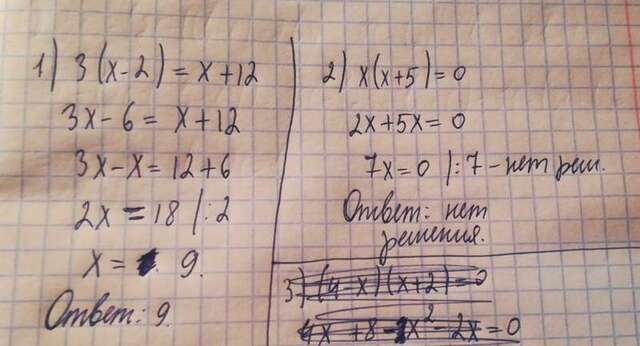 1) 3(x-2) = x+12
3x-6 = x+12
3x-x = 12+6
2x = 18 |:2
x = 9.
Ответ: 9.
2) x(x+5)=0
2x+5x=0
7x=0 |:7 - нет реш.
Ответ: нет
решения.
3) (4-x)(x+2)=0
4x+8-1x²-2x=0